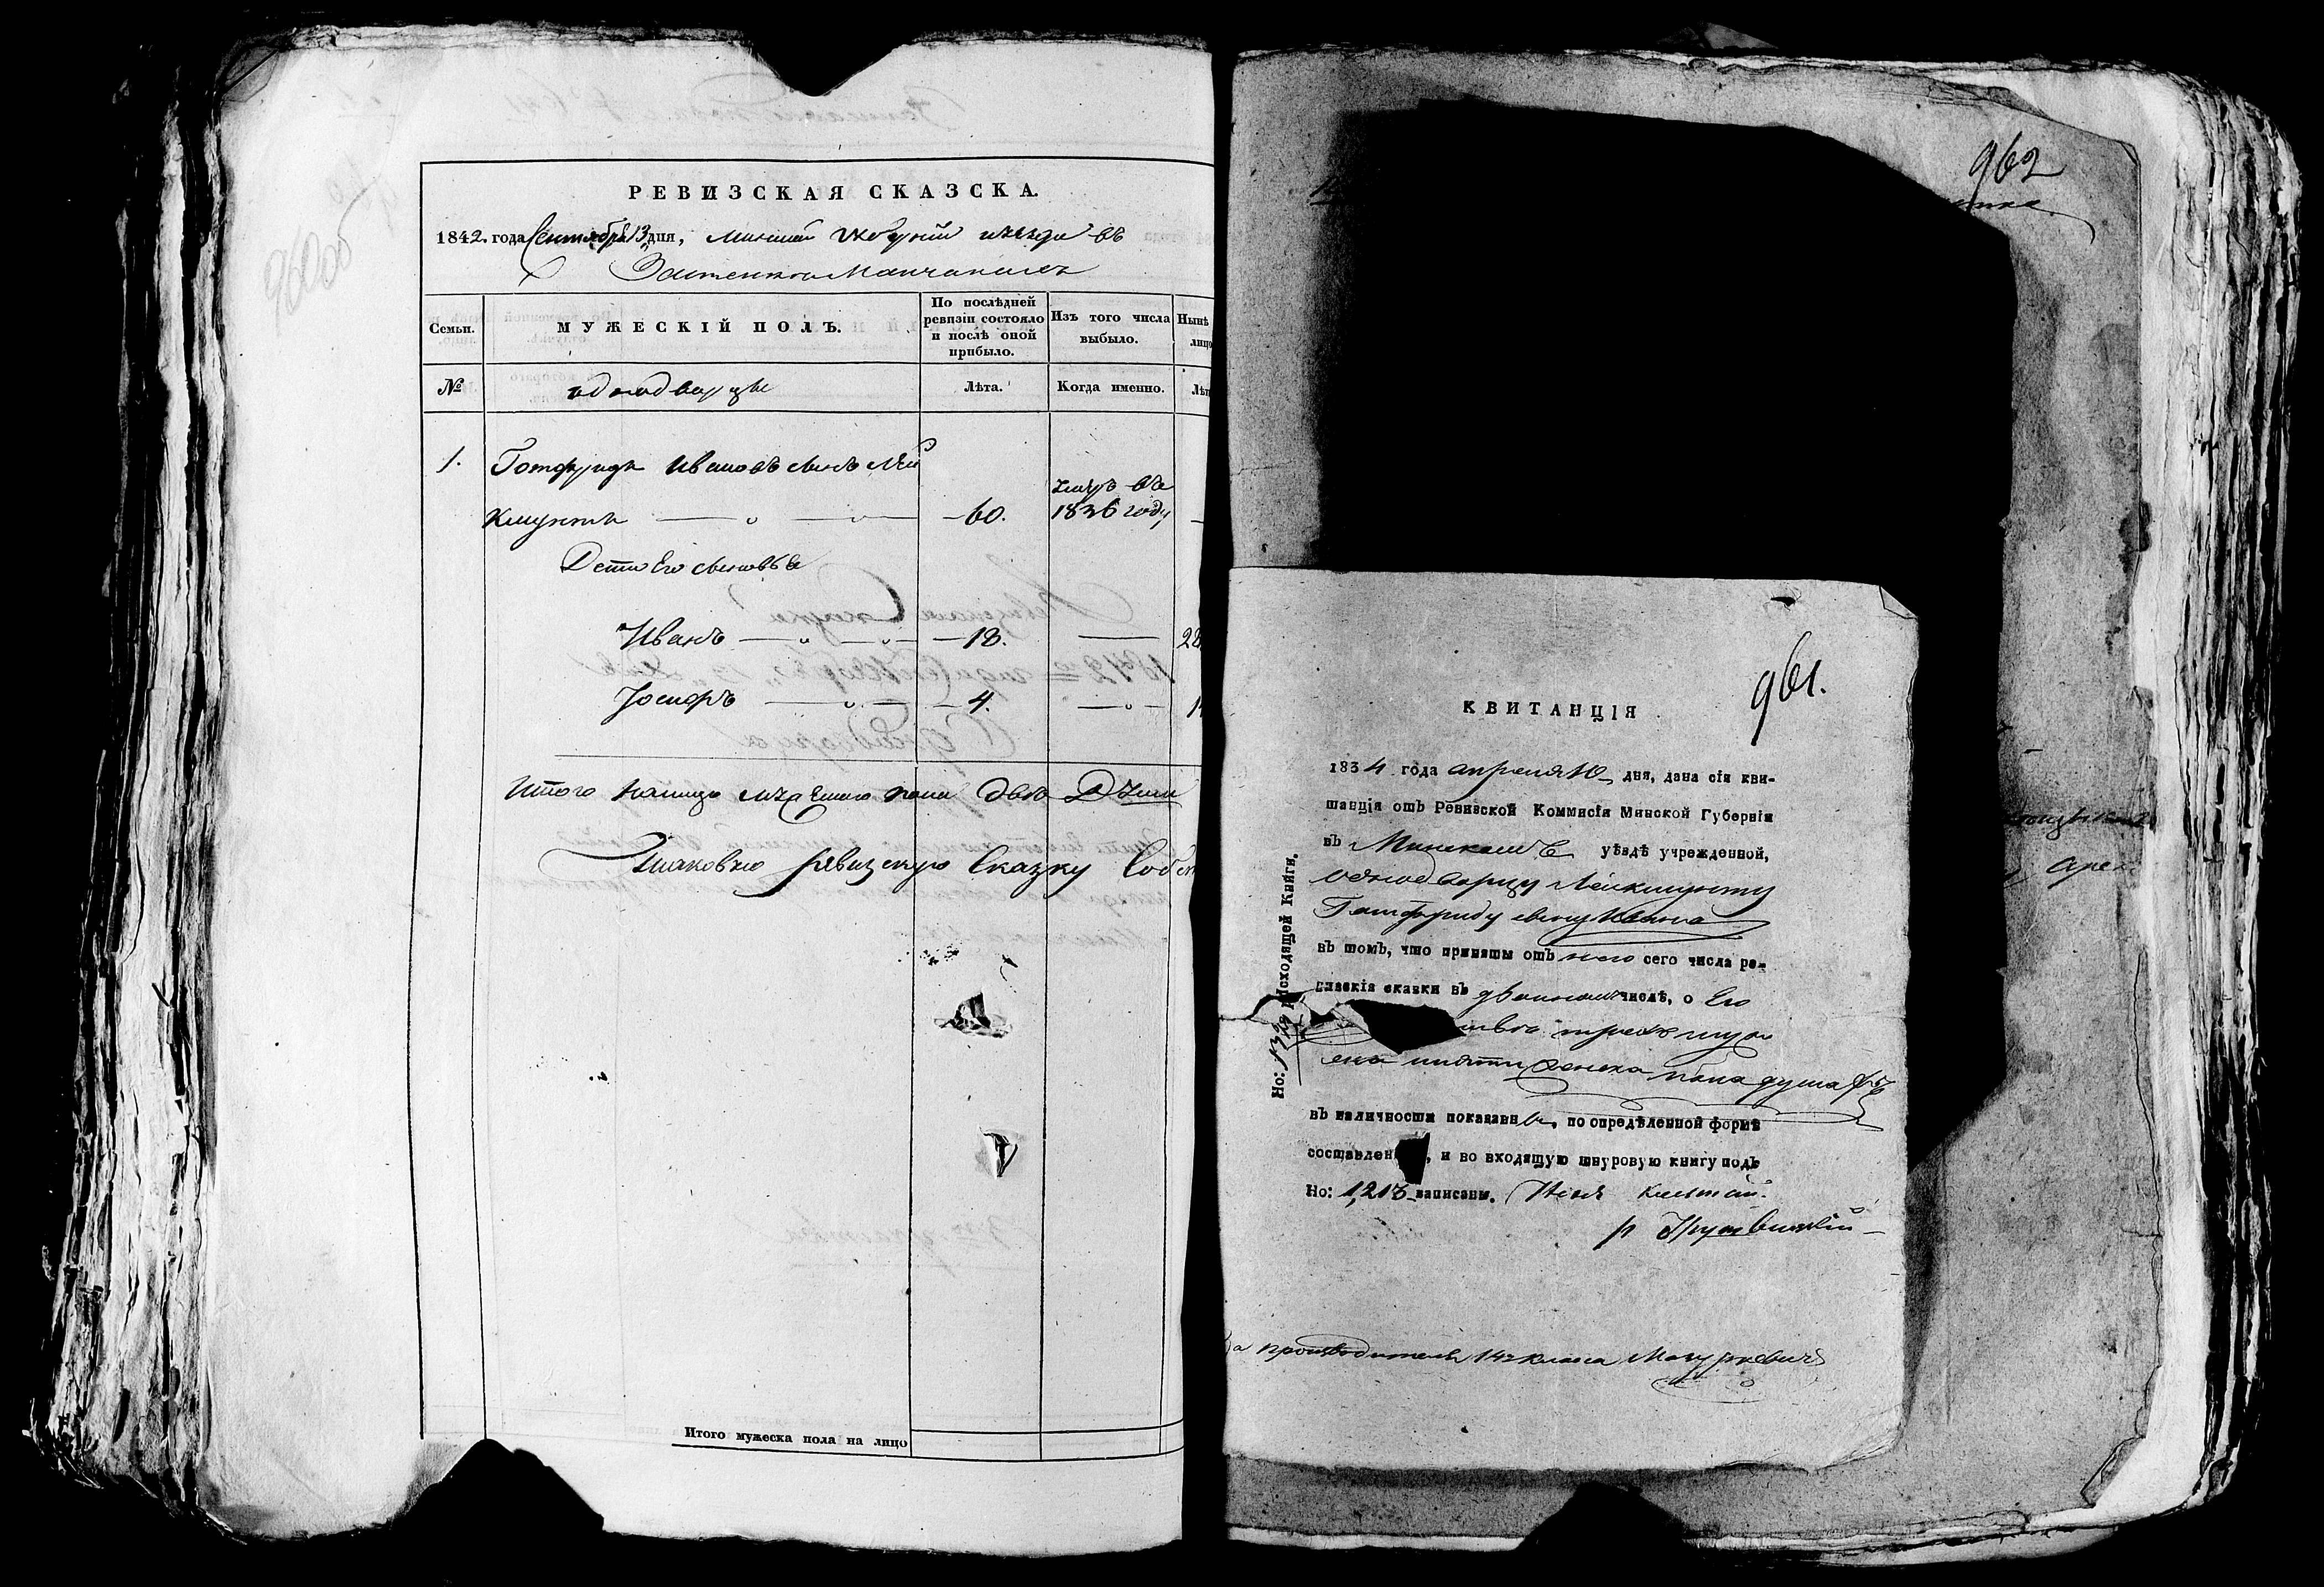 960об
РЕВИЗСКАЯ СКАЗСКА.
1842. года Сентября 13 дня, Минской Губерніи уезда въ
Застенка
Семьи.
МУЖЕСКІЙ ПОЛЪ.
По послѣдней ревизіи состояло и послѣ оной прибыло.
Изъ того числа выбыло.
Нынѣ лицо
№
однодворцы
Лѣта.
Когда именно.
Лѣт
1.
Готфридъ Ивановъ сынъ Лей
кмунтъ
60.
умръ въ 1836 году
Дети Его сыновья
Иванъ
18.
Іосифъ
4.
Итого налицо мужеска пола две Души
Таковую ревизскую Сказку
Итого мужеска пола на лицо
962
961.
КВИТАНЦІЯ
1834 года апреля 10 дня, дана сія кви-
танція отъ Ревизской Коммисіи Минской Губерніи
въ Минскомъ уѣздѣ учрежденной,
однодворцу Лейкмунту
Готфриду сыну Ивана
въ томъ, что приняты отъ него сего числа ре-
визскія сказки въ двойномъ числѣ, о Его
трехъ муж
ска пяти женска пола душахъ
въ наличности показанны, по опредѣленной формѣ
составлен , и во входящую шнуровую книгу подъ
Но: 1,213 записаны.
Но: Исходящей Книги.
производителя 14 класса Мазуркевичъ